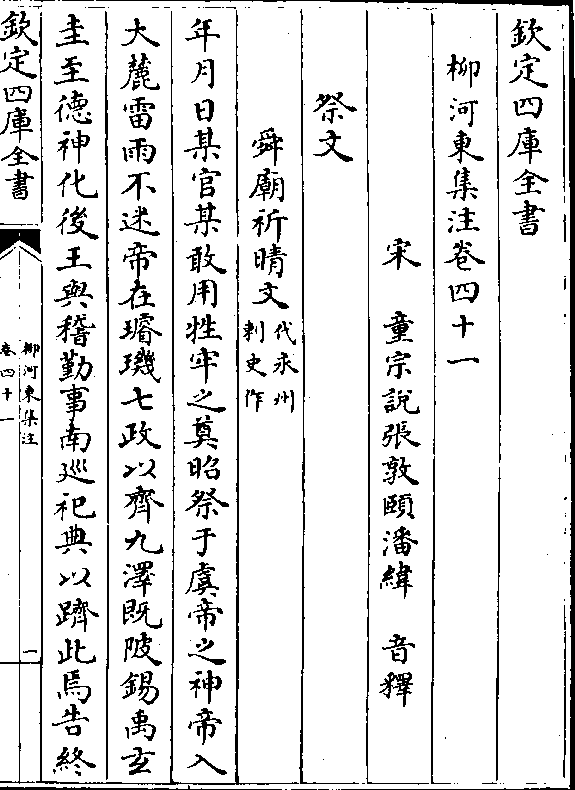 欽定四庫全書
柳河東集注卷四十一
宋 童宗說張敦頤潘緯 音釋
祭文
舜廟祈晴文代永州刺史作
年月日某官某敢用牲牢之奠昭祭于虞帝之神帝入
大麓雷雨不迷帝在璿璣七政以齊九澤既陂錫禹玄
圭至德神化後王與稽勤事南廵祀典以躋此焉告終
欽定四庫全書
柳河東集注
卷四十一
一